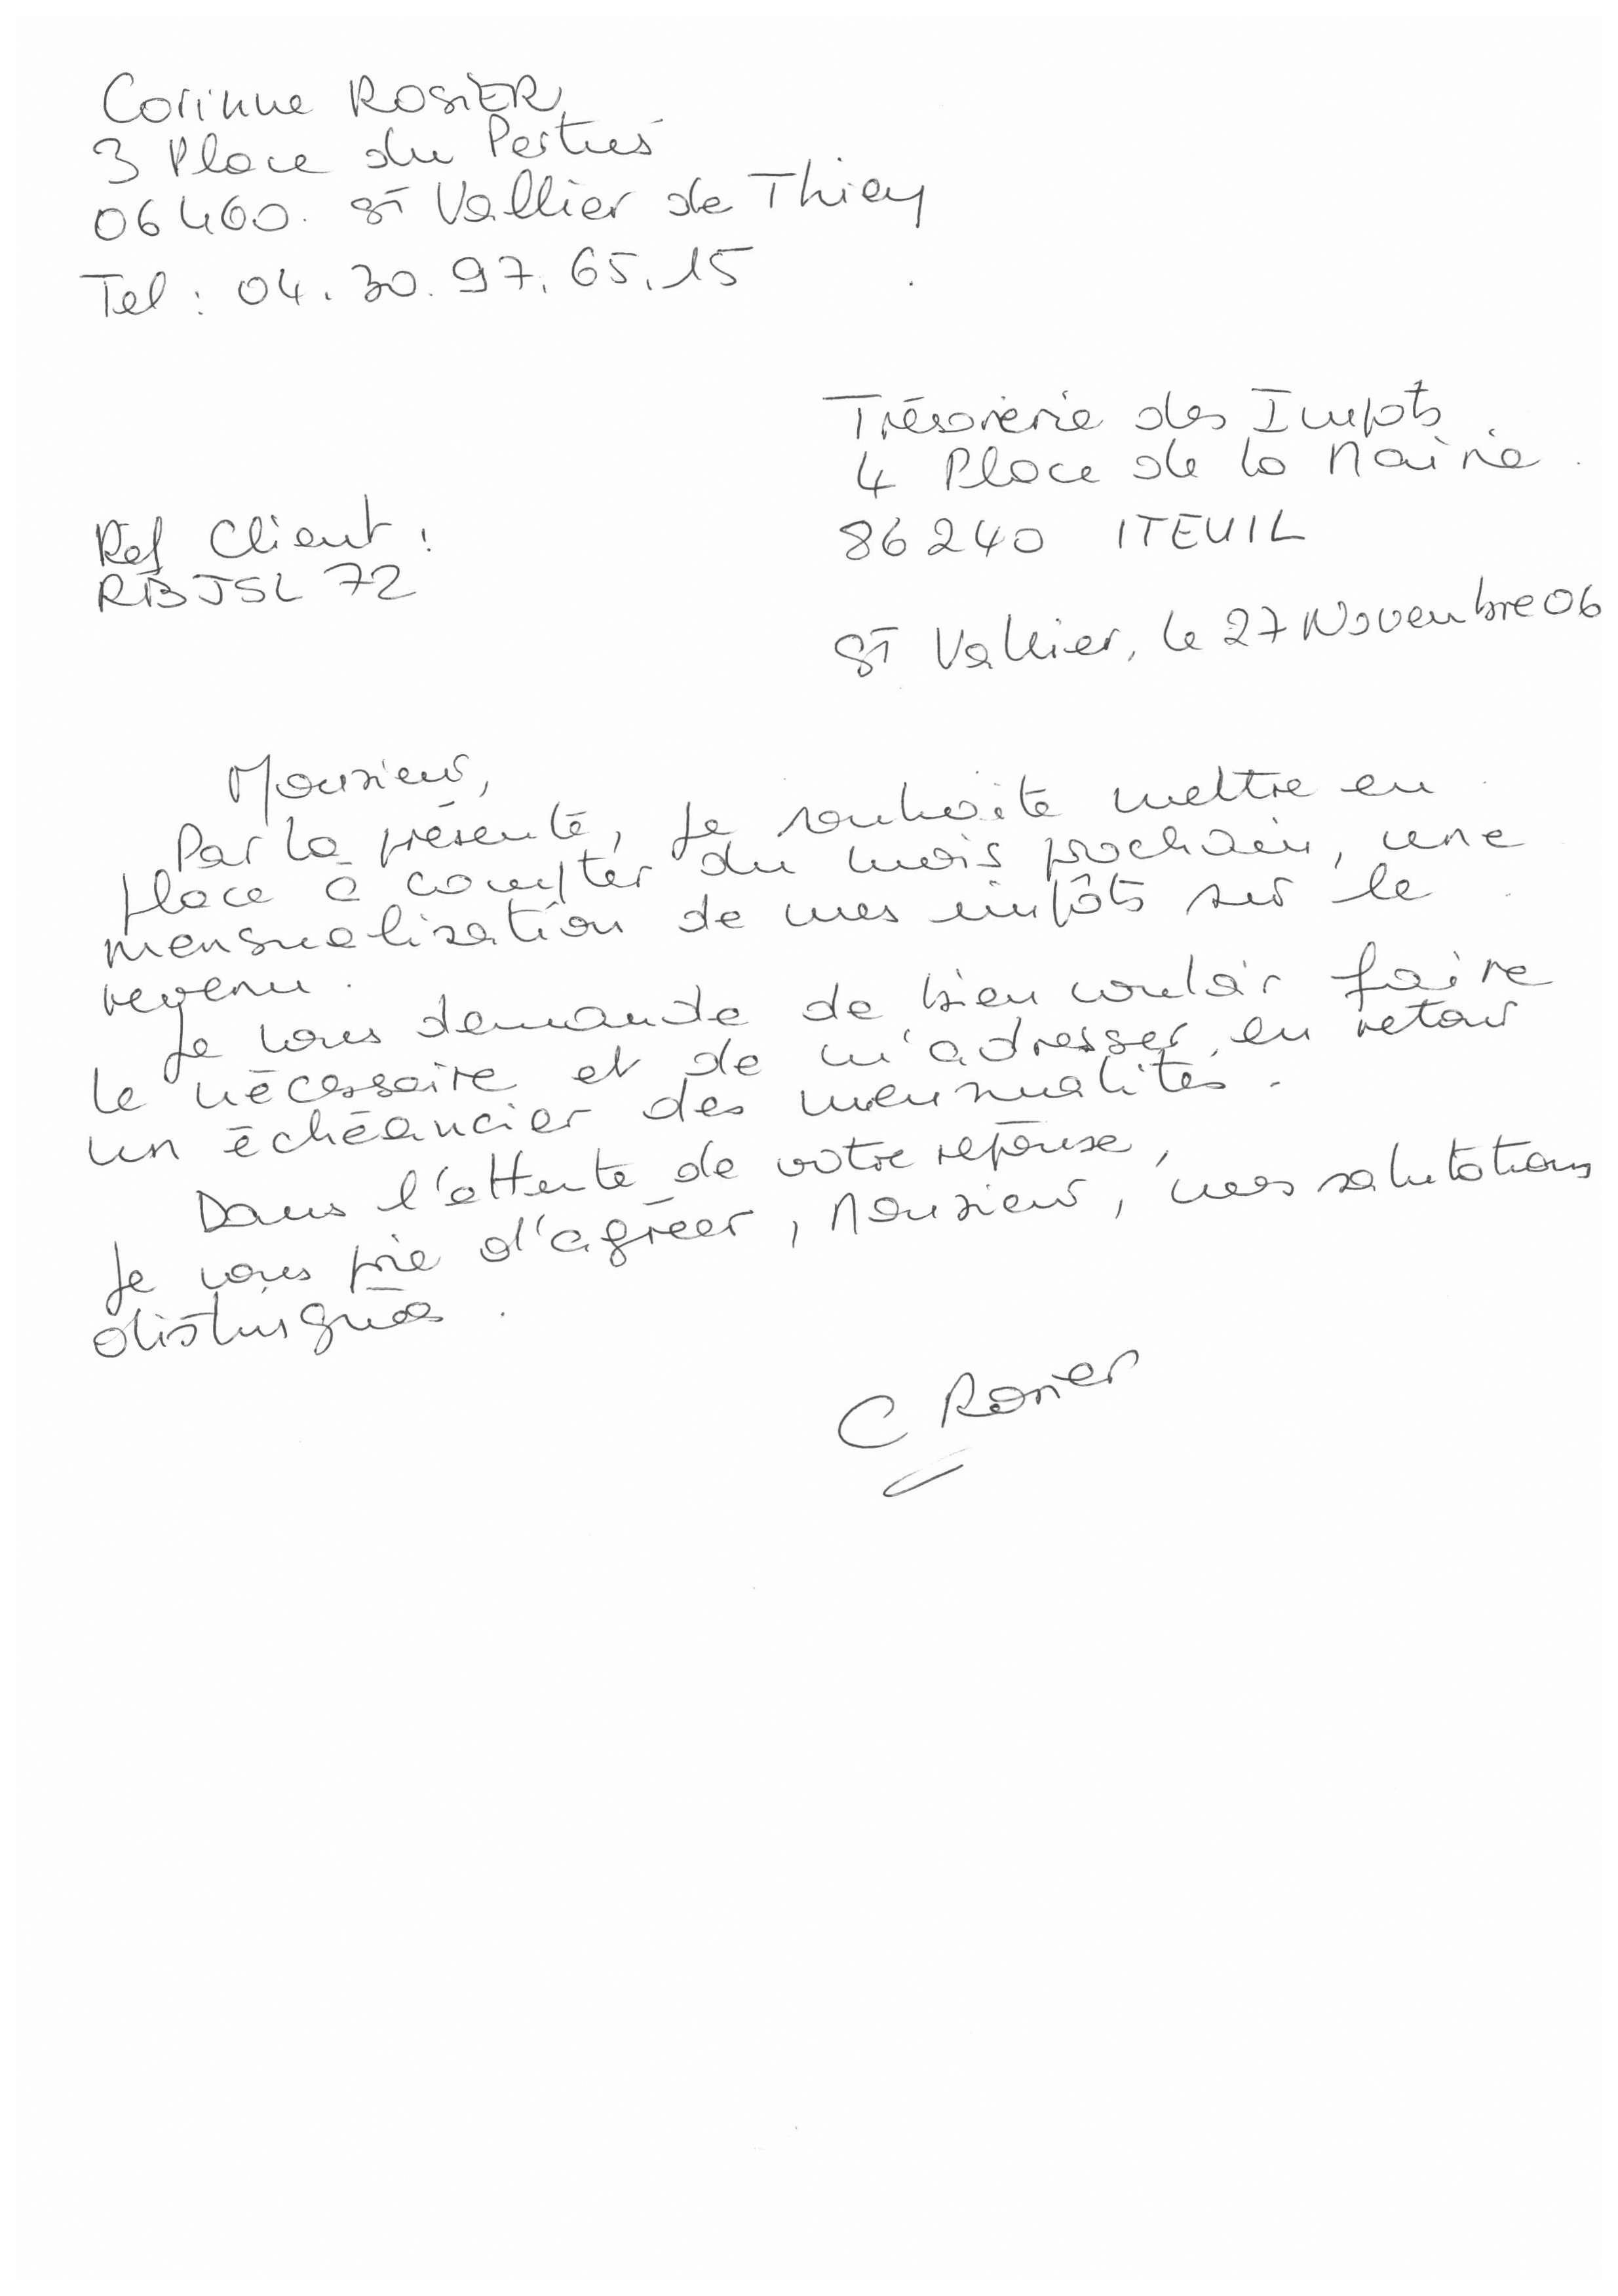 Corinne ROSIER
3 Place du Pertus
06460. St Vallier de Thiey
Tel : 04.30.97.65.15
Trésorerie des Impots
4 Place de la Mairie
86240 ITEUIL
Ref Client :
RBJSL72
St Vallier, le 27 Novembre 06
Monsieur,
Par la présente, je souhaite mettre en
place à compter du mois prochain, une
mensualisation de mes impôts sur le
revenu.
Je vous demande de bien vouloir faire
le nécessaire et de m'adresser en retour
un échéancier des mensualités.
Dans l'attente de votre réponse,
je vous prie d'agréer, Monsieur, mes salutations
distinguées.
C Rosier